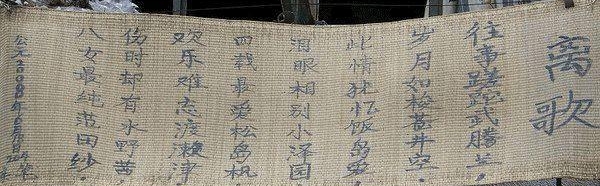 离歌
往事蹉跎武腾兰,
岁月如梭苍井空,
此情犹忆饭岛爱,
泪眼相别小泽园,
四载最爱松岛枫
欢乐难忘渡濑津,
伤时却有水野茜,
八女最纯范田纱,
公元2008年